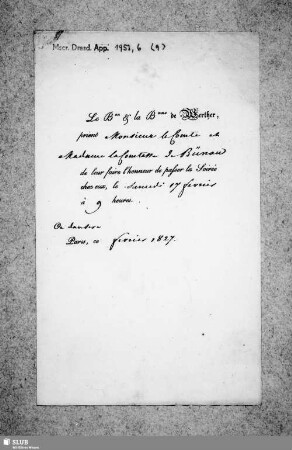 Mscr. Dresd. App. 1953, 6 (9)
Le B.on & la B.onne de Werther,
prient Monsieur le Comte et
Madame la Comtesse de Bünau
de leur faire l'honneur de paſser la Soirée
chez eux, le Samedi 17 fevrier
à 9 heures.
On dansera
Paris, ce fevrier 1827.
SLUB
Wir führen Wissen.